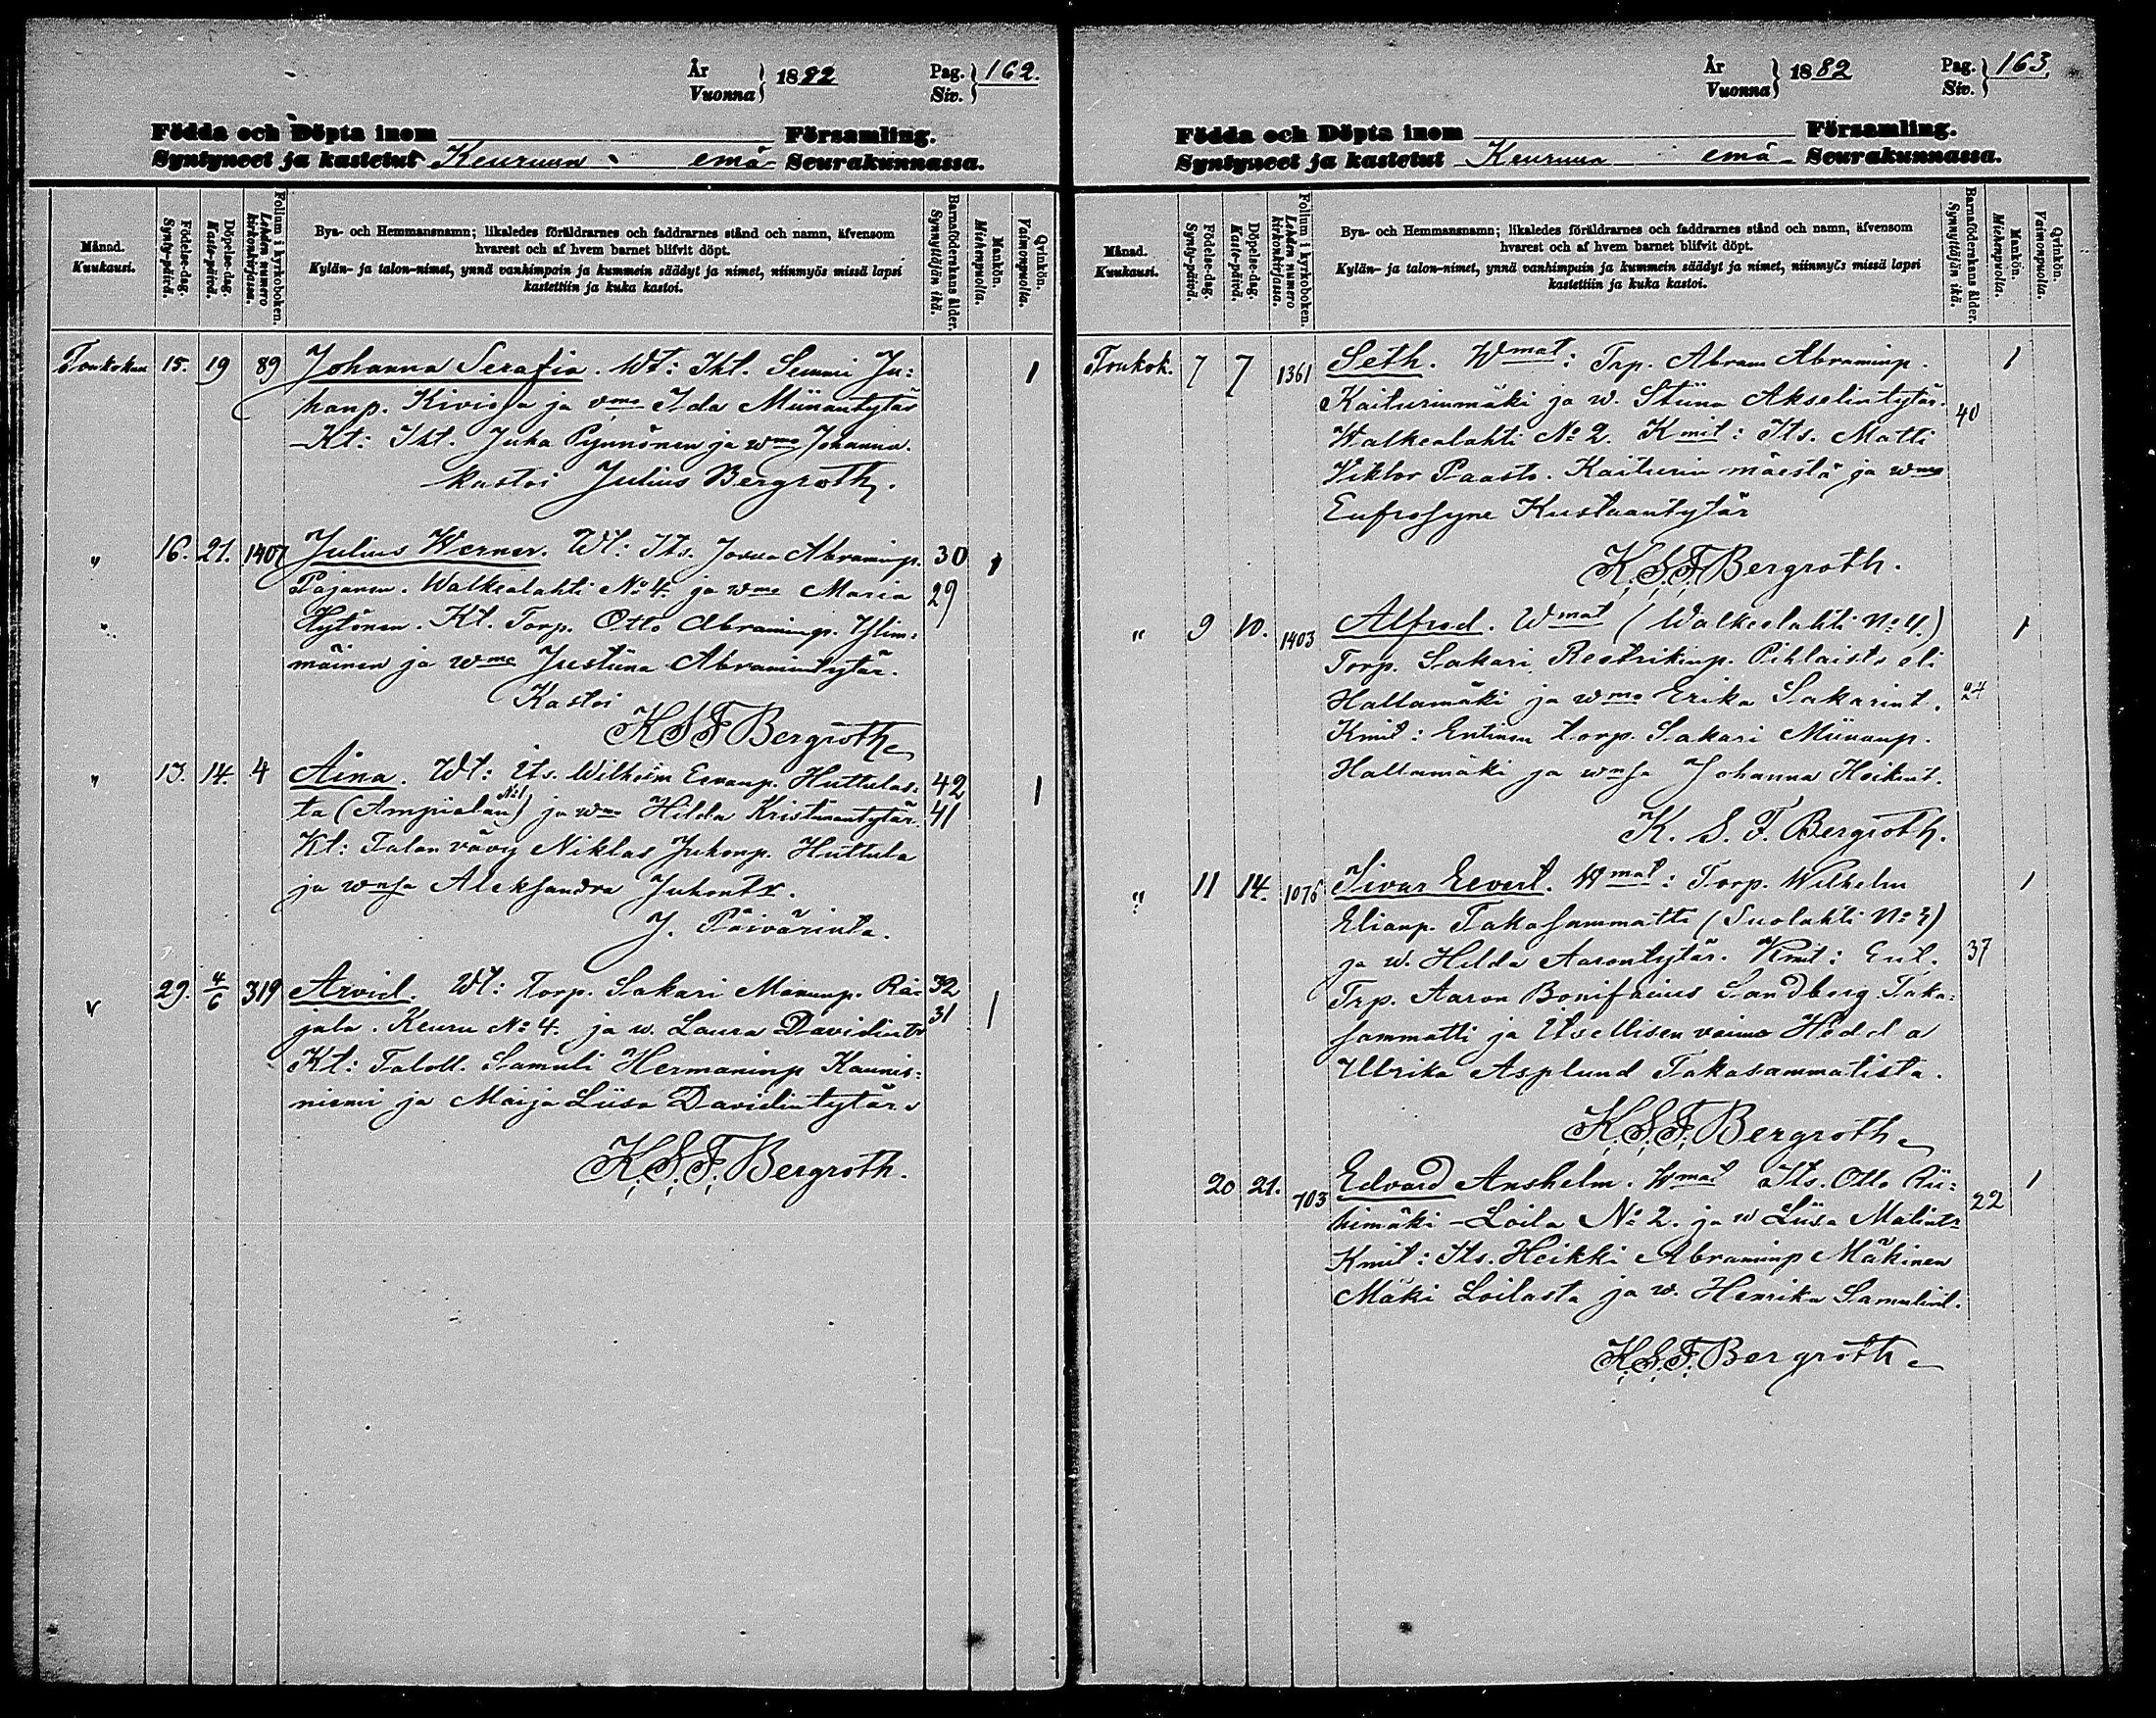 År
Vuonna } 1882 Pag.
Siv. } 162.
Födda och Döpta inom Församling.
Syntyneet ja kastetut Keuruun emä- Seurakunnassa.
Månad.
Kuukausi.
Födelse-dag.
Synty-päivä.
Döpelse-dag.
Kaste-päivä.
Folium i kyrkoboken.
Lehden numero
kirkonkirjassa.
Bya- och Hemmansnamn; likaledes föräldrarnes och faddrarnes stånd och namn, äfvensom
hvarest och af hvem barnet blifvit döpt.
Kylän- ja talon-nimet, ynnä vanhimpain ja kummein säädyt ja nimet, niinmyös missä lapsi
kastettiin ja kuka kastoi.
Barnaföderskans ålder.
Synnyttäjän ikä.
Mankön.
Miehenpuolia.
Qvinkön.
Vaimonpuolia.
Toukokuu 15. 19 89 Johanna Serafia. Wt: Iht. Semmi Ju= 1
hanp. Kivioja ja vmo Ida Miinantytär
Kt: Iht. Juha Pynnönen ja wmo Johanna.
kastoi Julius Bergroth.
" 16. 21. 1407 Julius Werner. Wt: Its. Joona Abraminp. 30 1
Pajanen. Walkealahti No 4. ja wmo Maria 29
Hytönen. Kt. Torp. Otto Abraminp. Ylim=
mäinen ja wmo Justiina Abramintytär.
Kastoi
KSF Bergroth
" 13. 14. 4 Aina. Wt: Its. Wilhelm Eevanp. Huttulas= 42 1
ta (Ampialan No 1) ja wmo Hilda Kristianintytär. 41
Kt: Talon vävy Niklas Juhonp. Huttula
ja wnsa Aleksandra Juhontr.
J. Päivärinta.
" 29. 4/6 319 Arvid. Wt: torp. Sakari Manunp. Ra= 32 1
jala. Keuru No 4. ja w. Laura Davidintr 31
Kt: Taloll. Samuli Hermaninp Kaunis=
niemi ja Maija Liisa Davidintytär
K.S.F. Bergroth.
År
Vuonna } 1882 Pag.
Siv. } 163
Födda och Döpta inom Församling.
Syntyneet ja kastetut Keuruun emä- Seurakunnassa.
Månad.
Kuukausi.
Födelse-dag.
Synty-päivä.
Döpelse-dag.
Kaste-päivä.
Folium i kyrkoboken.
Lehden numero
kirkonkirjassa.
Bya- och Hemmansnamn; likaledes föräldrarnes och faddrarnes stånd och namn, äfvensom
hvarest och af hvem barnet blifvit döpt.
Kylän- ja talon-nimet, ynnä vanhimpain ja kummein säädyt ja nimet, niinmyös missä lapsi
kastettiin ja kuka kastoi.
Barnaföderskans ålder.
Synnyttäjän ikä.
Mankön.
Miehenpuolia.
Qvinkön.
Vaimonpuolia.
Toukok. 7 7 1361 Seth. Wmat: Trp. Abram Abraminp. 1
Kaiturinmäki ja w. Stiina Akselintytär. 40
Walkealahti No 2. Kmit: Its. Matti
Viktor Paasto. Kaiturin mäestä ja wmo
Eufrosyne Kustaantytär
K.S.F. Bergroth.
" 9 10. 1403 Alfred. Wmat (Walkealahti No 4.) 1
Torp. Sakari Reetrikinp. Pihlaisto eli
Hallamäki ja wmo Erika Sakarint. 24
Kmit: Entinen torp. Sakari Miinanp.
Hallamäki ja wnsa Johanna Heikint.
K. S. F. Bergroth.
" 11 14. 1076 Sivar Eevert. Wmat: Torp. Wilhelm 1
Elianp. Takasammatti (Suolahti No 4)
ja w. Hilda Aarontytär. Kmit: Ent. 37
Trp. Aaron Bonifacius Sandberg Taka=
sammatti ja Itsellisen vaimo Hedda
Ulrika Asplund Takasammatista.
K.S.F. Bergroth
20 21. 703 Edvard Anshelm. Wmat Its. Otto Rii= 22 1
himäki - Loila No 2. ja w Liisa Matintr
Kmit: Its. Heikki Abraminp Mäkinen
Mäki Loilasta ja w. Henrika Samulint.
K.S.F. Bergroth